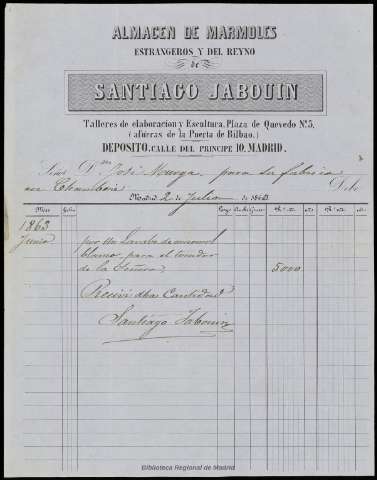 ALMACEN DE MARMOLES
ESTRANGEROS Y DEL REYNO
de
SANTIAGO JABOUIN
Talleres de elaboracion y Escultura, Plaza de Quevedo Nº 5,
(afueras de la Puerta de Bilbao.)
DEPOSITO, CALLE DEL PRINCIPE 10, MADRID.
José para su fabrica
en Chamberi Debe
Madrid 2 de Julio de 1863
1863
Junio por un Lavabo de marmol
blanco para el tocador
de la Señora 5000
Recivi dha Cantidad
Santiago Jabouin
Biblioteca Regional de Madrid